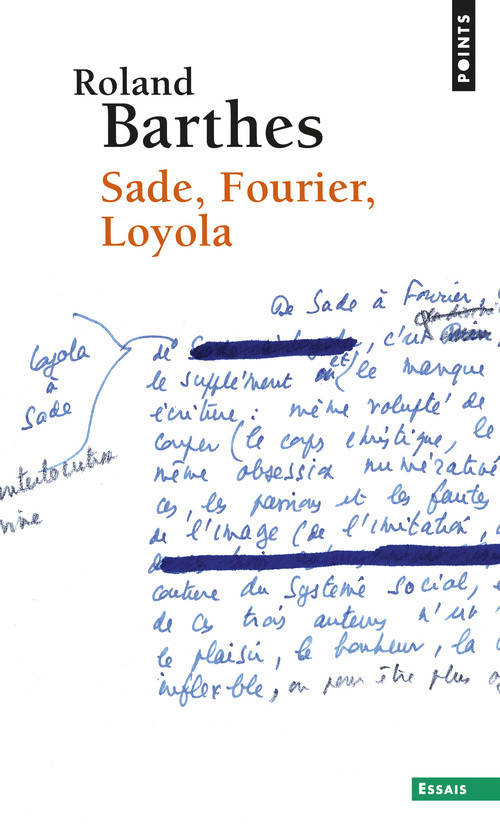 POINTS
Roland
Barthes
Sade, Fourier,
Loyola
De Sade à Fourier,
de
le supplément et le manque
écriture : même volupté de
couper (le corps christique, le
même obsession numérative
ces, les passions et les fautes
de l'image (de l'imitation,
couture du système social,
de ces trois auteurs n'
le plaisir, le bonheur, la
inflexible, ou pour être plus
Loyola
à
Sade
ESSAIS